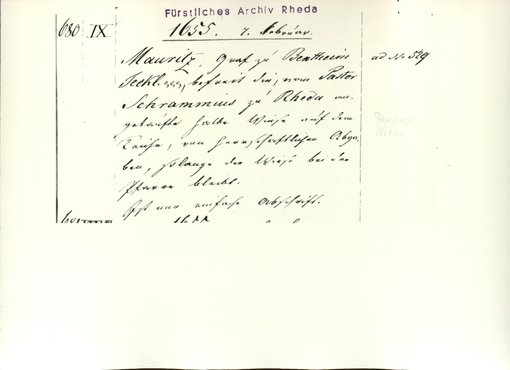 Fürstliches Archiv Rheda
680 IX 1655. 7. Februar.
Mauritz, Graf zu Bentheim ad No 529
Teckl. pp, befreit die, vom Pastor
Schrammius zu Rheda an-
gekaufte halbe Wiese auf dem
von herrschaftlichen Abga-
ben, solange die Wiese bei der
Pfarre bleibt.
Ist nur einfache Abschrift.